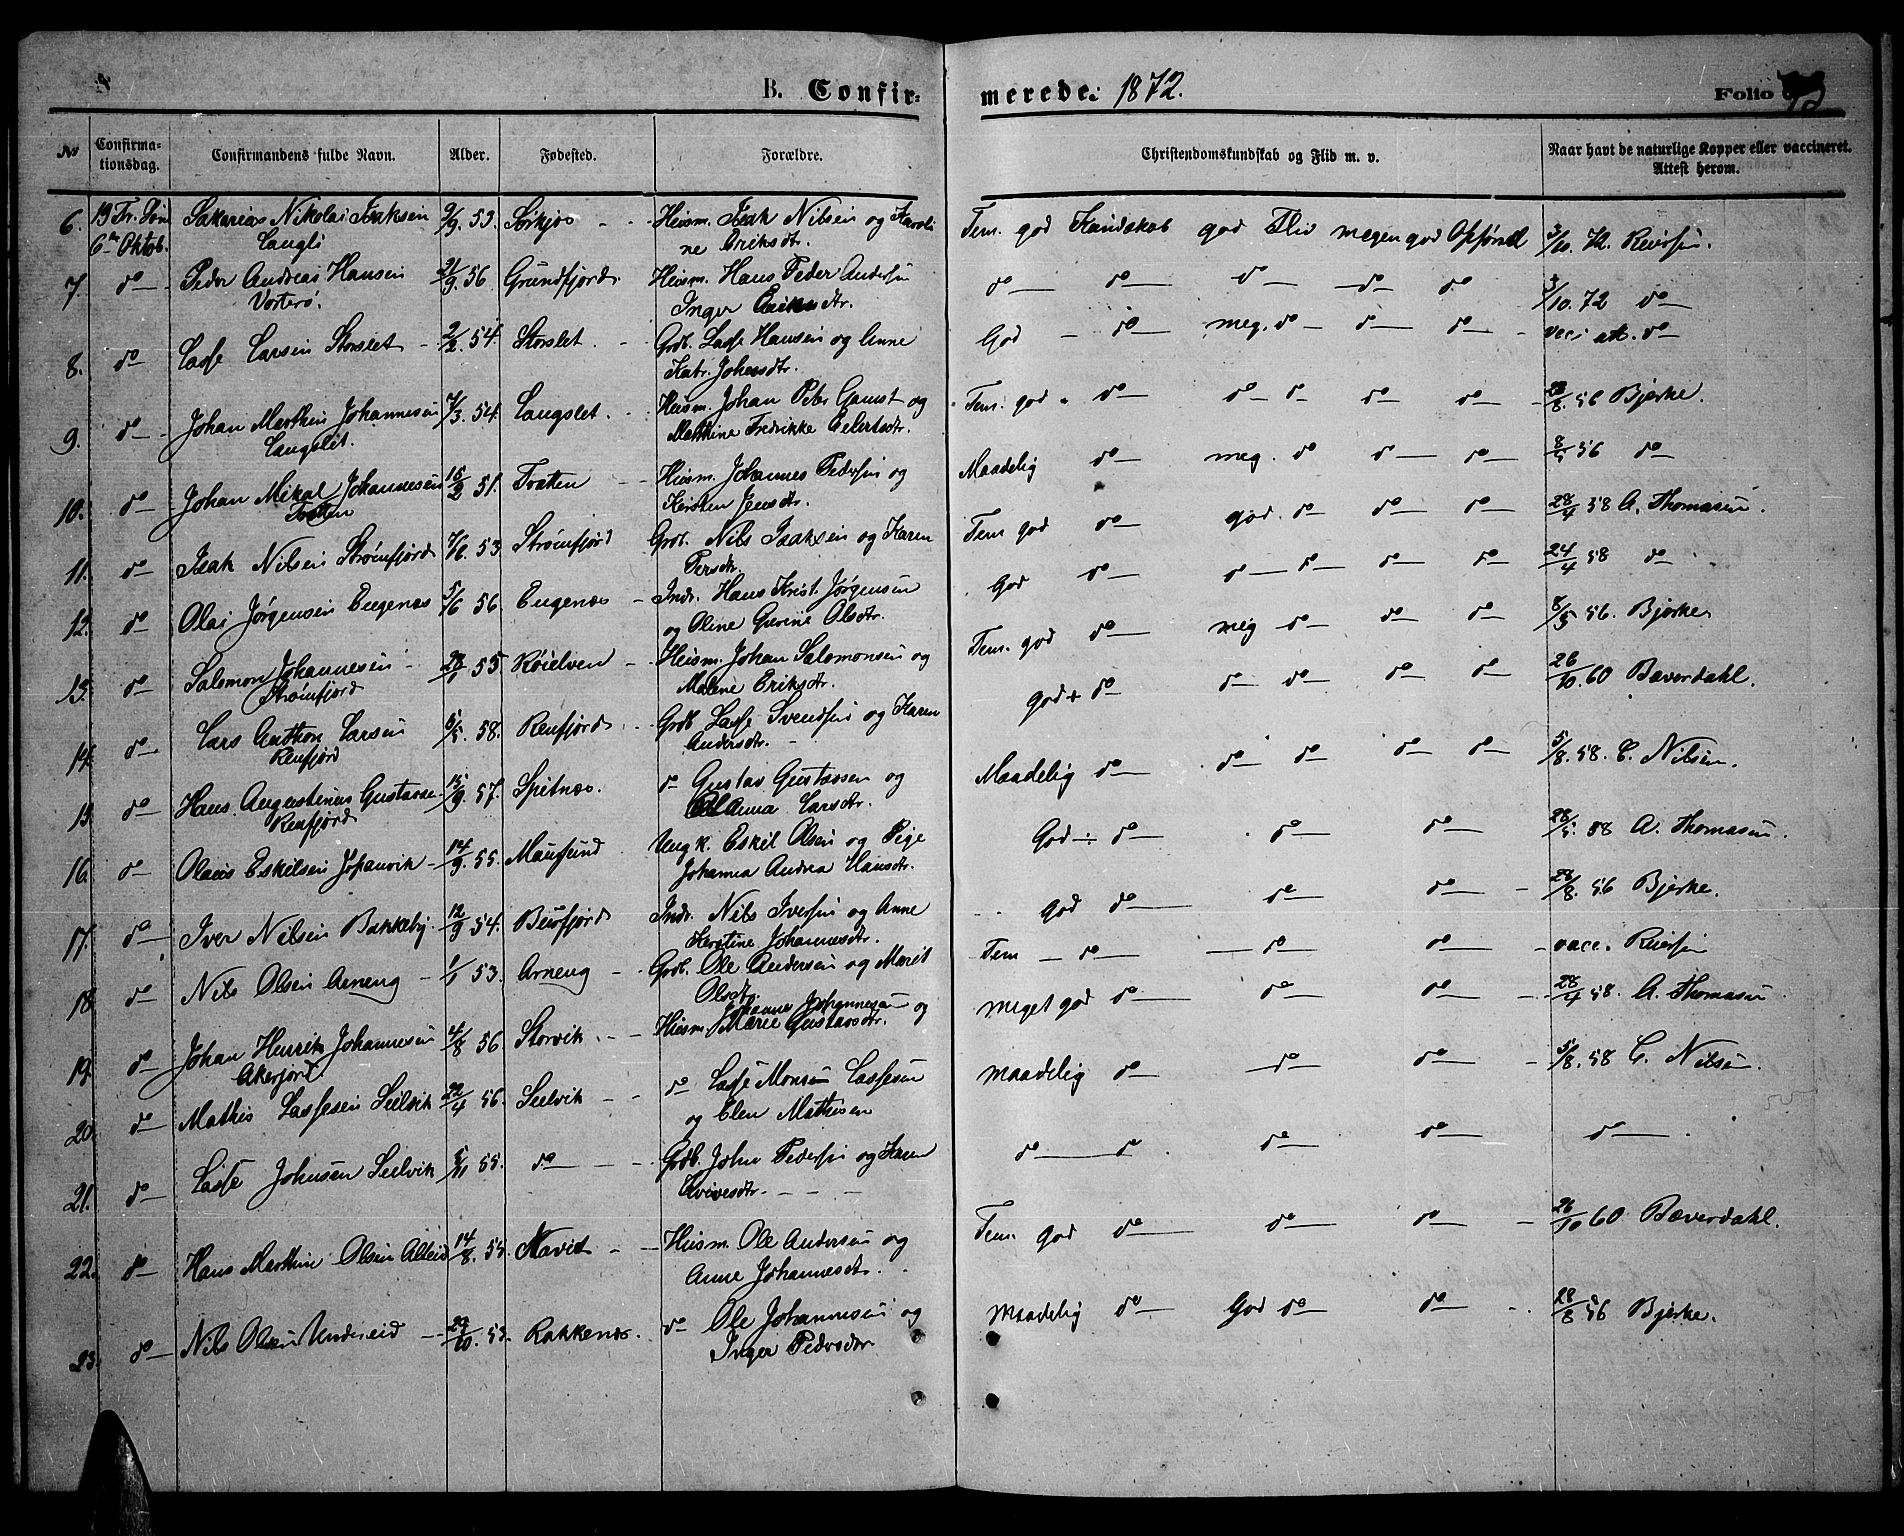 B. Confir-
merede. 1872.
Folio
No
Confirma-
tionsdag.
Confirmandens fulde Navn.
Alder.
Fødested.
Forældre.
Christendomskundskab og Flid m. v.
Naar havt de naturlige Kopper eller vaccineret.
Attest herom.
6. 19 Tr. Søn Sakarias Nikolai Isaksen 9/9 53. Sørkjos Huusm. Isak Nilsen og Karoli Tem. god Kundskab god Flid megen god Opførsel 3/10. 72. Reiersen.
6te Oktob. Langli ne Eriksdtr.
7. do Peder Andreas Hansen 21/9. 56. Grundfjord Huusm. Hans Peder Andersen do do do do do 3/10. 72 do
Vorterø. Inger Eriksdtr.
8. do Lasse Larsen Storslet 2/2. 54. Storslet. Grdb. Lasse Hansen og Anne God do meg. do do do vacc. att. do
Katr. Johnsdtr.
9. do Johan Marthin Johannesen 7/3. 54. Langslet. Huusm. Johan Peter Gamst og Tem. god do do do do do 28/8. 56 Bjerke.
Langslet. Marthine Fredrikke Eilertsdtr.
10. do Johan Mikal Johannesen 15/2 51. Tratten Huusm. Johannes Pedersen og Maadelig do meg. do do do 56 do
Tratten Kirsten Jensdtr.
11. do Isak Nilsen Strømfjord 7/6. 53. Strømfjord Grdb. Nils Isaksen og Karen Tem god do god. do do do 28/4 58 A. Thomasen.
Persdtr.
12. do Olai Jørgensen Eugenæs 5/6 56. Eugenæs Indr. Hans Krist. Jørgensen God do do do do do 24/4 58 do
og Oline Gurine Olsdtr.
13. do Salomon Johannesen 55 Køielven Huusm. Johan Salomonsen og Tem. god do meg do do do 8/5 56. Bjerke
Strømfjord Malene Eriksdtr.
14. do Lars Anthon Larsen 58. Reufjord Grdb. Lasse Svendsen og Karen god + do do do do do 26/10. 60 Bæverdahl.
Reufjord Andersdtr.
15. do Hans. Augustinus Gustavse 15/9. 57. Spitnæs. do Gustav Gustavsen og Maadelig do do do do do 5/8. 58. C. Nilsen.
Reufjord Anna Larsdtr.
16. do Olaus Eskilsen Jøkanvik 14/9. 55. Maursund Ungk. Eskil Olsen og Pige God ÷ do do do 28/5. 58 A. Thomasen.
Johanna Andrea Hansdtr.
17. do Iver Nilsen Bakkeby 12/9 54. Buröfjord Indr. Nils Iversen og Anne God do do do 28/8. 56 Bjerke.
Kerstine Johannesdtr.
18. do Nils Olsen Arneng 1/1 53. Arneng Grdb. Ole Andersen og Marit Tem do do do vacc. Reiersen
Olsdtr.
19. do Johan Henrik Johannesen 4/8 56. Storvik. Huusm. Johannes Johannesen og meget god do do do 28/4 58. A. Thomasen
Akerfjord Marie Gustavsdtr.
20. do Mathis Lassesen Seelvik 22/4 56. Seelvik do Lasse Monsen Lassesen maadelig do do do 5/8. 58 C. Nilsen.
og Elen Mathisen
21. do Lasse Johnsen Seelvik 5/11 55. do Grdb. John Pedersen og Karen do do do do do
22. do Hans Marthin Olsen Alteid 14/8. 55. Navit Huusm. Ole Andersen og Tem. god do do do 26/10 60 Bæverdahl.
Anne Johannesdtr.
23. do Nils Olsen Undereid 29/10. 53. Rakkenæs. do Ole Johannesen og maadelig do God do do 28/8 56 Bjerke.
Inger Pedersdtr